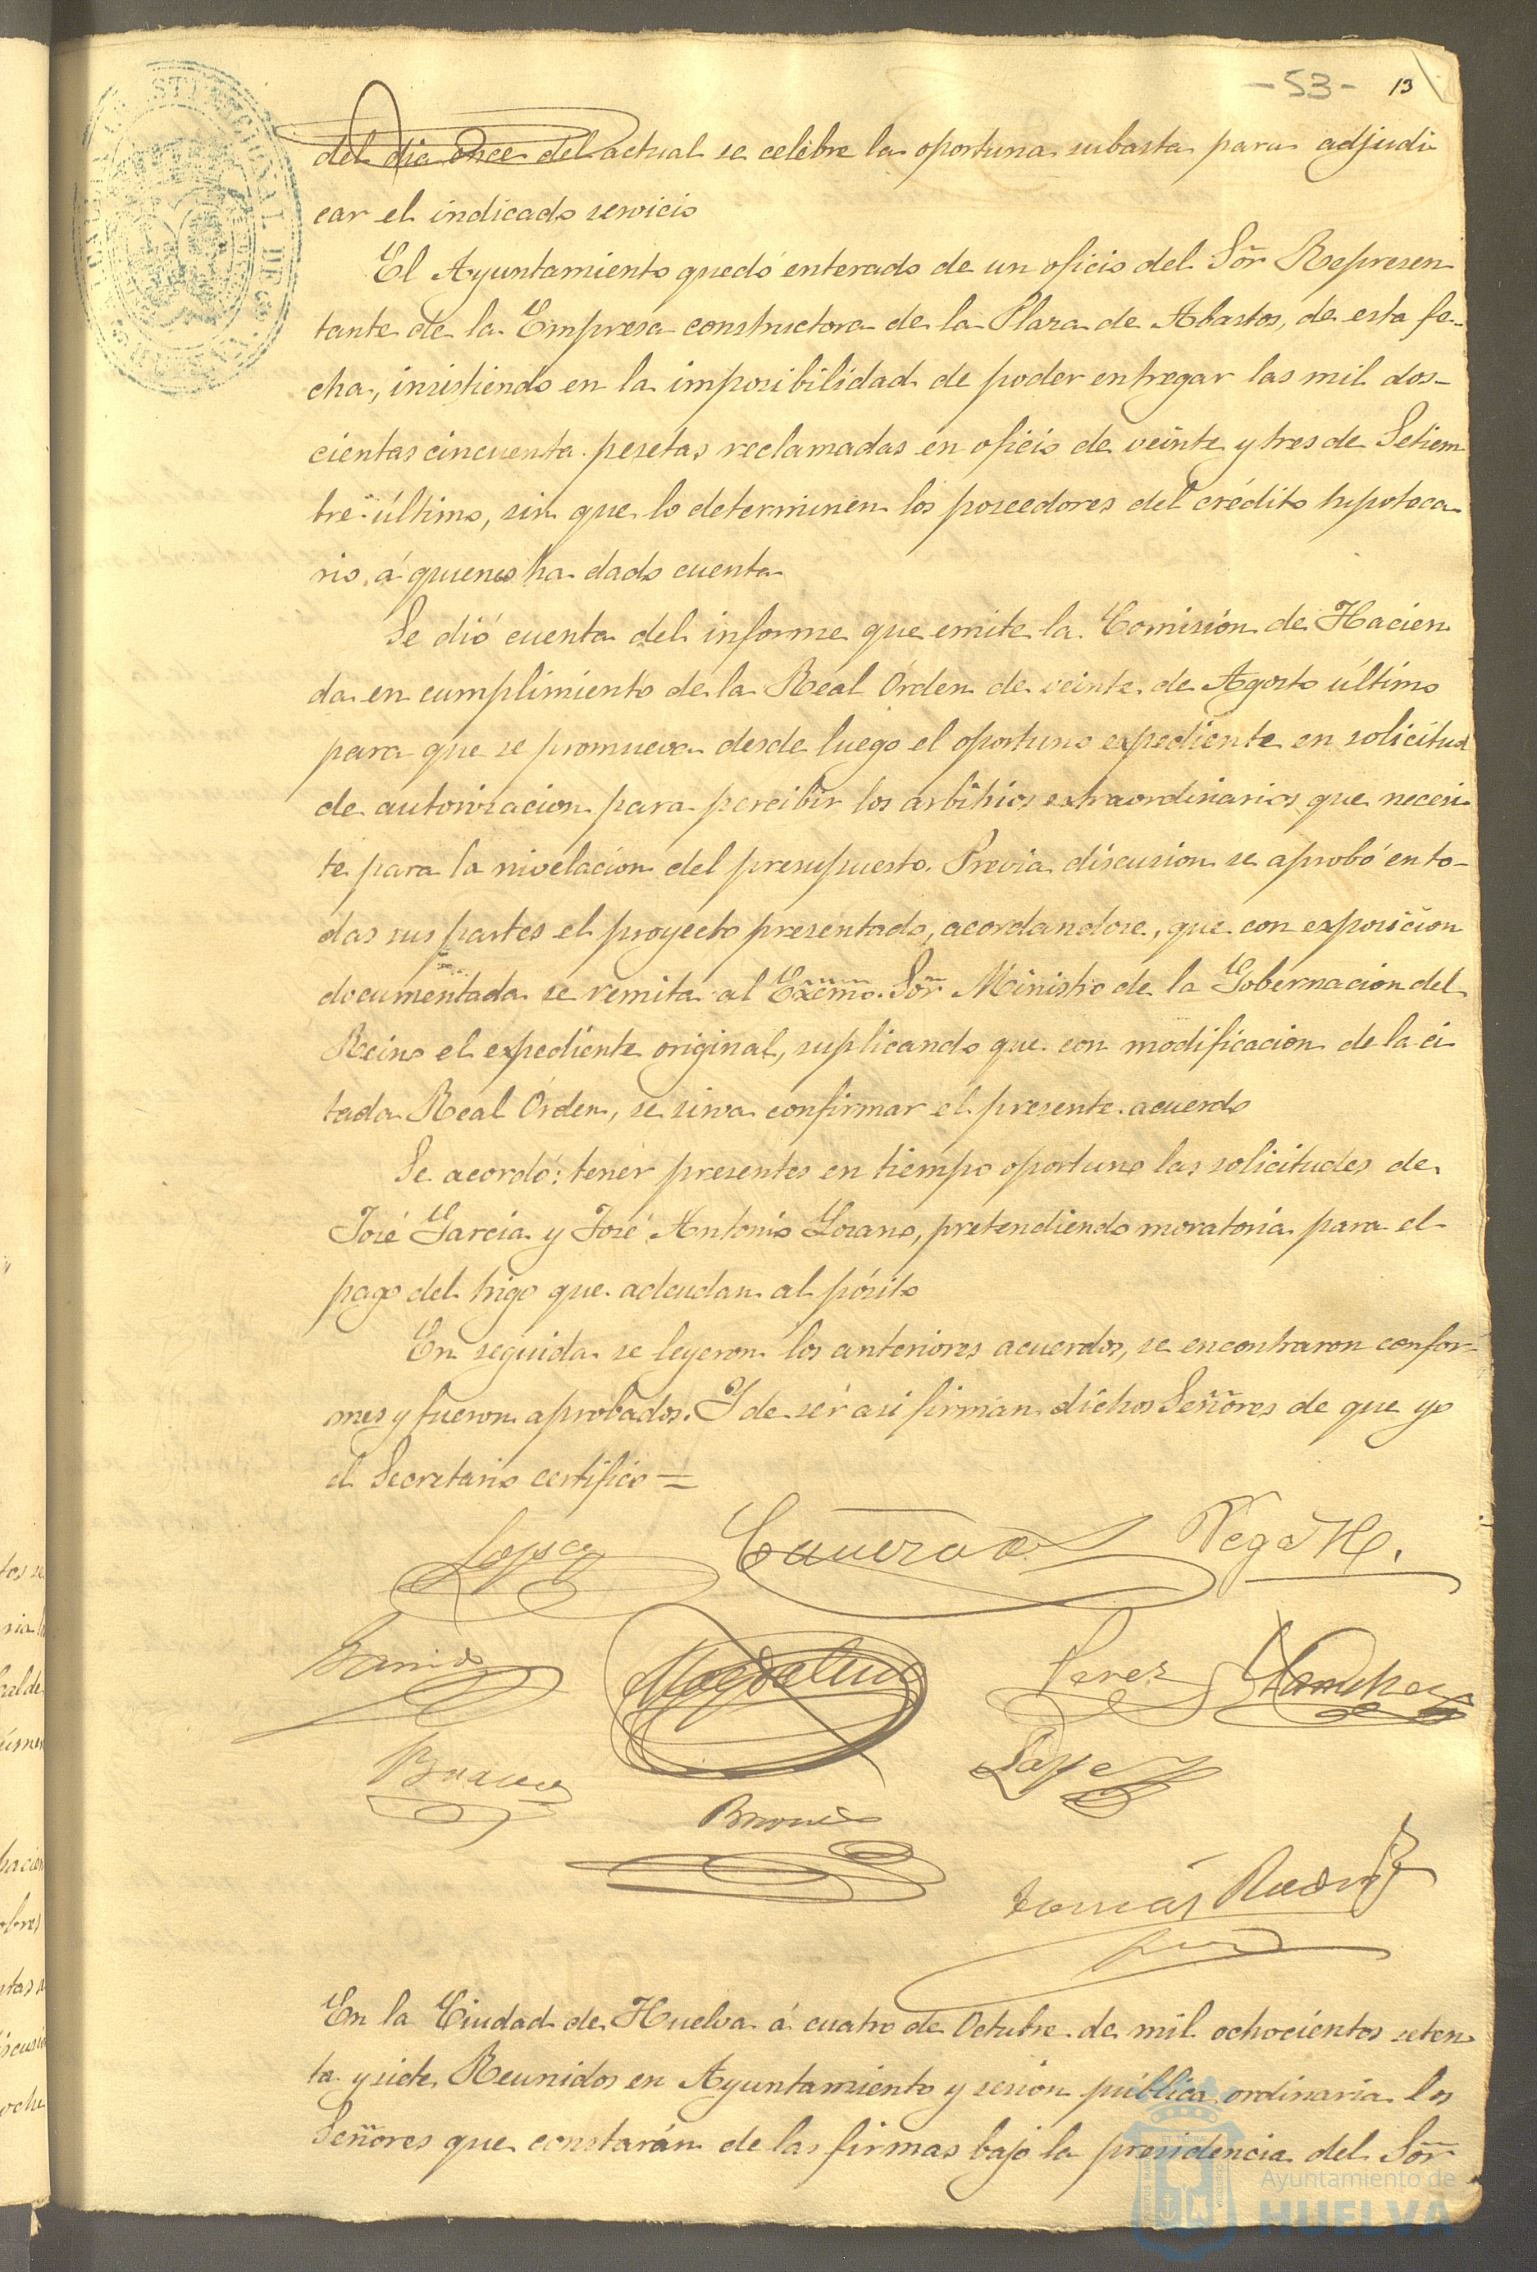 - 53 - 13
del dia once del actual se celebre la oportuna subasta para adjudi
car el indicado servicio
El Ayuntamiento quedó enterado de un oficio del Sor̃ Represen
tante de la Empresa constructora de la Plaza de Abastos, de esta fe-
cha, insistiendo en la imposibilidad de poder entregar las mil dos-
cientas cincuenta pesetas reclamadas en oficio de veinte y tres de Setiem
bre último, sin que lo determinen los poseedores del crédito hipoteca-
rio, á quienes ha dado cuenta
Se dió cuenta del informe que emite la Comisión de Hacien
da en cumplimiento de la Real Órden de veinte de Agosto último
para que se promueva desde luego el oportuno expediente en solicitud
de autorizacion para percibir los arbitrios extraordinarios que necesi-
te para la nivelacion del presupuesto. Previa discusion se aprobó en to-
das sus partes el proyecto presentado, acordandose, que con exposicion
documentada se remita al Excmo. Sor̃ Ministro de la Gobernacion del
Reino el expediente original, suplicando que con modificacion de la ci
tada Real Órden, se sirva confirmar el presente acuerdo
Se acordó: tener presentes en tiempo oportuno las solicitudes de
José García y José Antonio Lozano, pretendiendo moratoria para el
pago del trigo que adeudan al pósito
En seguida se leyeron los anteriores acuerdos, se encontraron confor-
mes y fueron aprobados. Y de sér asi firman dichos Señores de que yo
el Secretario certifico =
Lopez Vega H.
Garrido Magdaleno Perez Sanchez
Lopez
Tomás Rodrig
En la Ciudad de Huelva á cuatro de Octubre de mil ochocientos seten
ta y siete, Reunidos en Ayuntamiento y sesion pública ordinaria los
Señores que constarán de las firmas bajo la presidencia del Sor̃
Ayuntamiento de
HUELVA